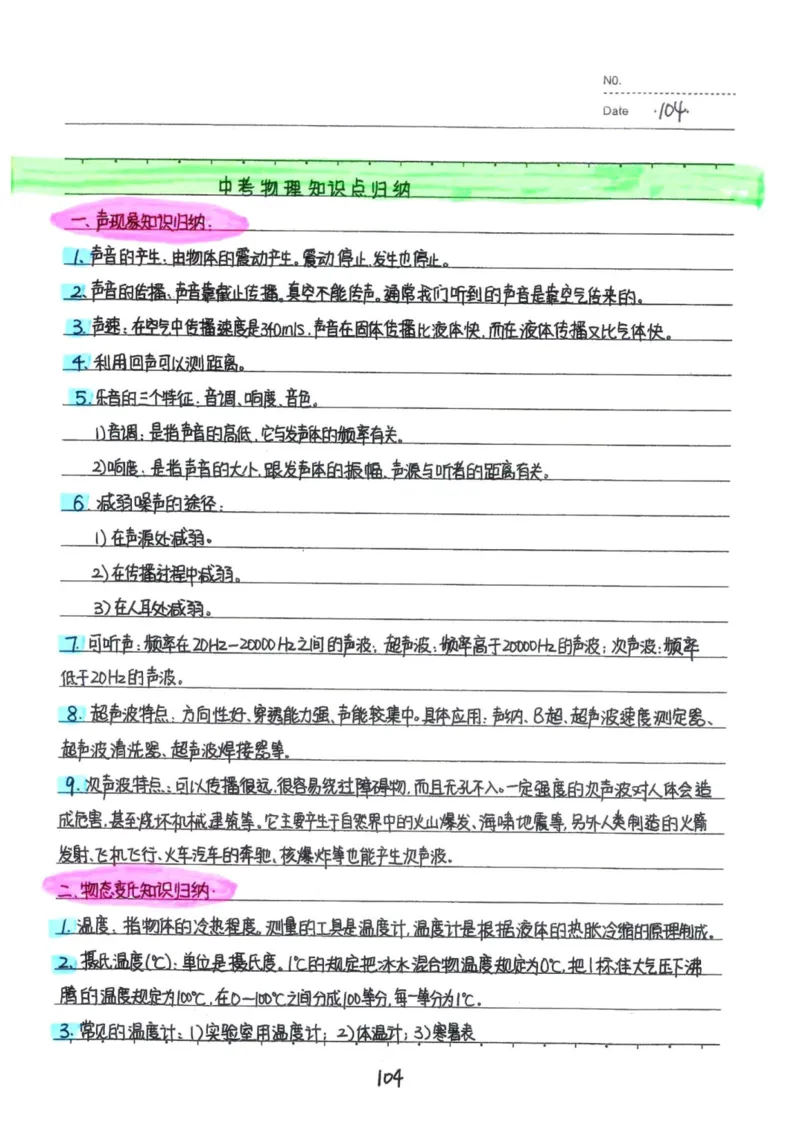 NO.
Date ·104·
中考物理知识点归纳
一、声现象知识归纳:
1、声音的产生:由物体的震动产生。震动停止,发生也停止。
2、声音的传播:声音靠截止传播。真空不能传声。通常我们听到的声音是靠空气传来的。
3、声速:在空气中传播速度是340m/s,声音在固体传播比液体快,而在液体传播又比气体快。
4、利用回声可以测距离。
5、乐音的三个特征:音调、响度、音色。
1)音调:是指声音的高低,它与发声体的频率有关。
2)响度:是指声音的大小,跟发声体的振幅、声源与听者的距离有关。
6、减弱噪声的途径:
1)在声源处减弱。
2)在传播过程中减弱。
3)在人耳处减弱。
7、可听声:频率在20Hz-20000Hz之间的声波;超声波:频率高于20000Hz的声波;次声波:频率
低于20Hz的声波。
8、超声波特点:方向性好、穿透能力强、声能较集中。具体应用:声纳、B超、超声波速度测定器、
超声波清洗器、超声波焊接器等。
9、次声波特点:可以传播很远,很容易绕过障碍物,而且无孔不入。一定强度的次声波对人体会造
成危害,甚至毁坏机械建筑等。它主要产生于自然界中的火山爆发、海啸地震等,另外人类制造的火箭
发射、飞机飞行、火车汽车的奔驰、核爆炸等也能产生次声波。
二、物态变化知识归纳·
1、温度:指物体的冷热程度。测量的工具是温度计,温度计是根据液体的热胀冷缩的原理制成。
2、摄氏温度(℃):单位是摄氏度。1℃的规定把冰水混合物温度规定为0℃,把1标准大气压下沸
腾的温度规定为100℃,在0-100℃之间分成100等分,每一等分为1℃。
3、常见的温度计:1)实验室用温度计;2)体温计;3)寒暑表
104